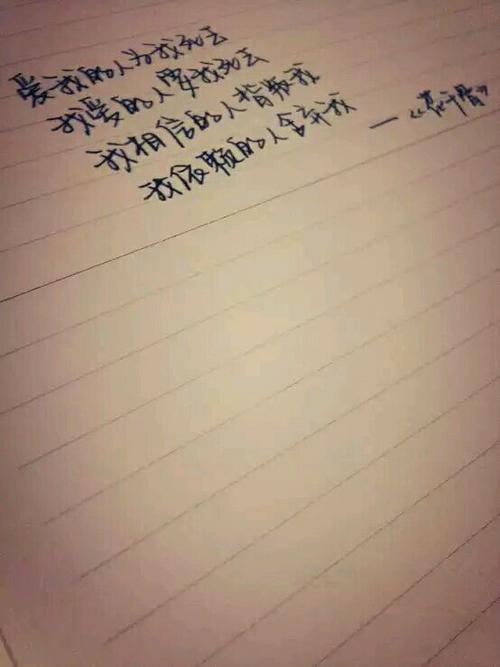 爱我的人为我死去
我爱的人要我死去
我相信的人背叛我
我依赖的人舍弃我
—《花千骨》